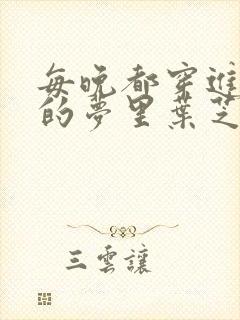 每晚都穿進
的夢里葉芝
三雲讓